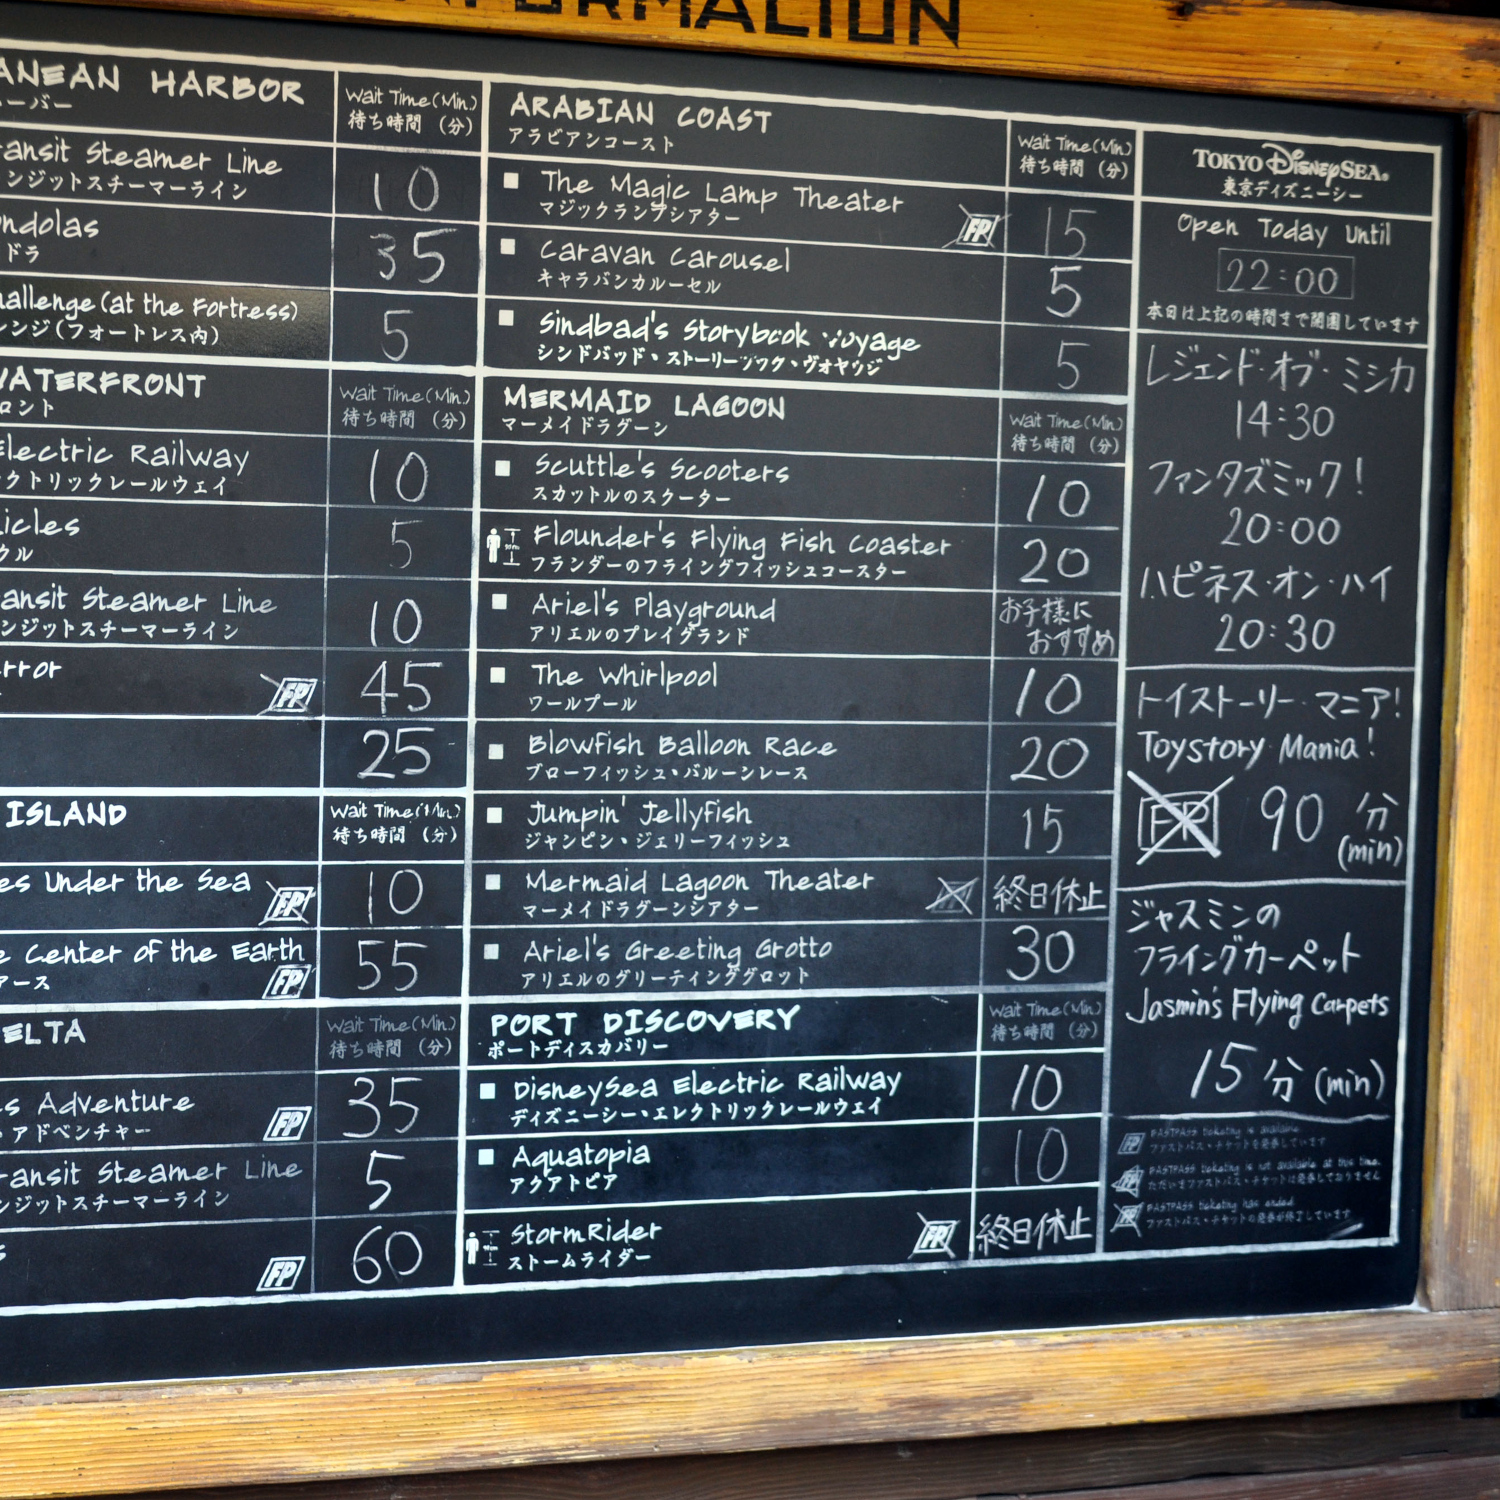 ANEAN HARBOR
ーバー
Wait Time (Min.)
待ち時間 (分)
ansit Steamer Line
ンジットスチーマーライン
10
ndolas
ドラ
35
hallenge (at the Fortress)
レンジ(フォートレス内)
5
WATERFRONT
ロント
Wait Time (Min.)
待ち時間 (分)
Electric Railway
クトリックレールウェイ
10
icles
クル
5
ansit Steamer Line
ンジットスチーマーライン
10
error
FP
45
25
ISLAND
Wait Time (Min.)
待ち時間 (分)
es Under the Sea
FP
10
e Center of the Earth
アース
FP
55
ELTA
Wait Time (Min.)
待ち時間 (分)
s Adventure
・アドベンチャー
FP
35
ransit Steamer Line
ンジットスチーマーライン
5
s
FP
60
ARABIAN COAST
アラビアンコースト
Wait Time (Min.)
待ち時間 (分)
The Magic Lamp Theater
マジックランプシアター
FP
15
Caravan Carousel
キャラバンカルーセル
5
Sindbad's Storybook Voyage
シンドバッド・ストーリーブック・ヴォヤッジ
5
MERMAID LAGOON
マーメイドラグーン
Wait Time (Min.)
待ち時間 (分)
Scuttle's Scooters
スカットルのスクーター
10
Flounder's Flying Fish Coaster
フランダーのフライングフィッシュコースター
20
Ariel's Playground
アリエルのプレイグランド
お子様に
おすすめ
The Whirlpool
ワールプール
10
Blowfish Balloon Race
ブローフィッシュ・バルーンレース
20
Jumpin' Jellyfish
ジャンピン・ジェリーフィッシュ
15
Mermaid Lagoon Theater
マーメイドラグーンシアター
FP
終日休止
Ariel's Greeting Grotto
アリエルのグリーティンググロット
30
PORT DISCOVERY
ポートディスカバリー
Wait Time (Min.)
待ち時間 (分)
DisneySea Electric Railway
ディズニーシー・エレクトリックレールウェイ
10
Aquatopia
アクアトピア
10
StormRider
ストームライダー
FP
終日休止
TOKYO DISNEYSEA®
東京ディズニーシー
Open Today Until
22:00
本日は上記の時間まで開園しています
レジェンド・オブ・ミシカ
14:30
ファンタズミック!
20:00
ハピネス・オン・ハイ
20:30
トイストーリー・マニア!
Toystory Mania!
FP 90 分
(min)
ジャスミンの
フライングカーペット
Jasmin's Flying Carpets
15 分 (min)
FP FASTPASS ticketing is available
ファストパス・チケットを発券しています
FP FASTPASS ticketing is not available at this time.
ただいまファストパス・チケットは発券しておりません
FP FASTPASS ticketing has ended
ファストパス・チケットの発券が終了しています